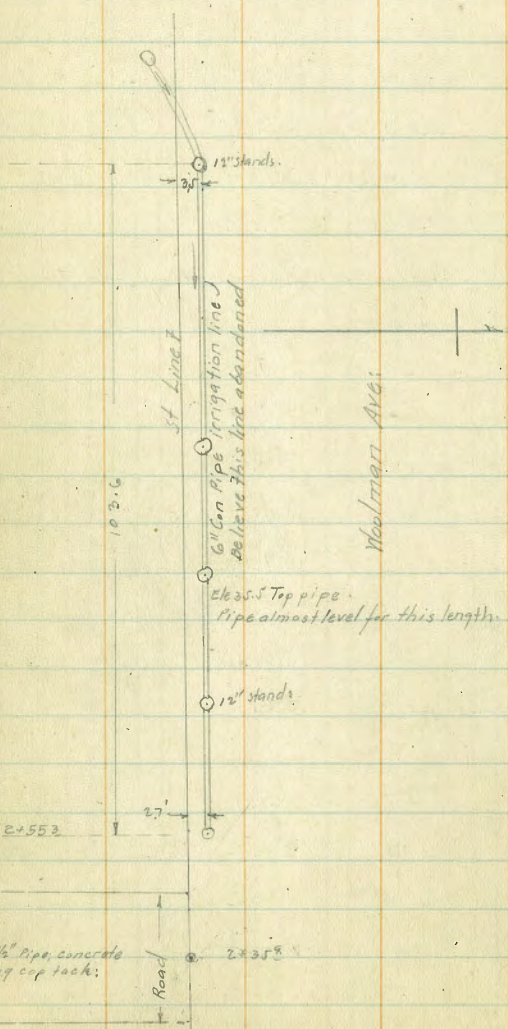 12" Stands.
3.5
St Line?
6" Con Pipe irrigation line
Believe this line abandoned
Woolman Ave.
103.6
Ele 35.5 Top pipe.
Pipe almost level for this length.
12" Stands
2.7'
2+553
Road
2" Pipe, concrete
cap tack.